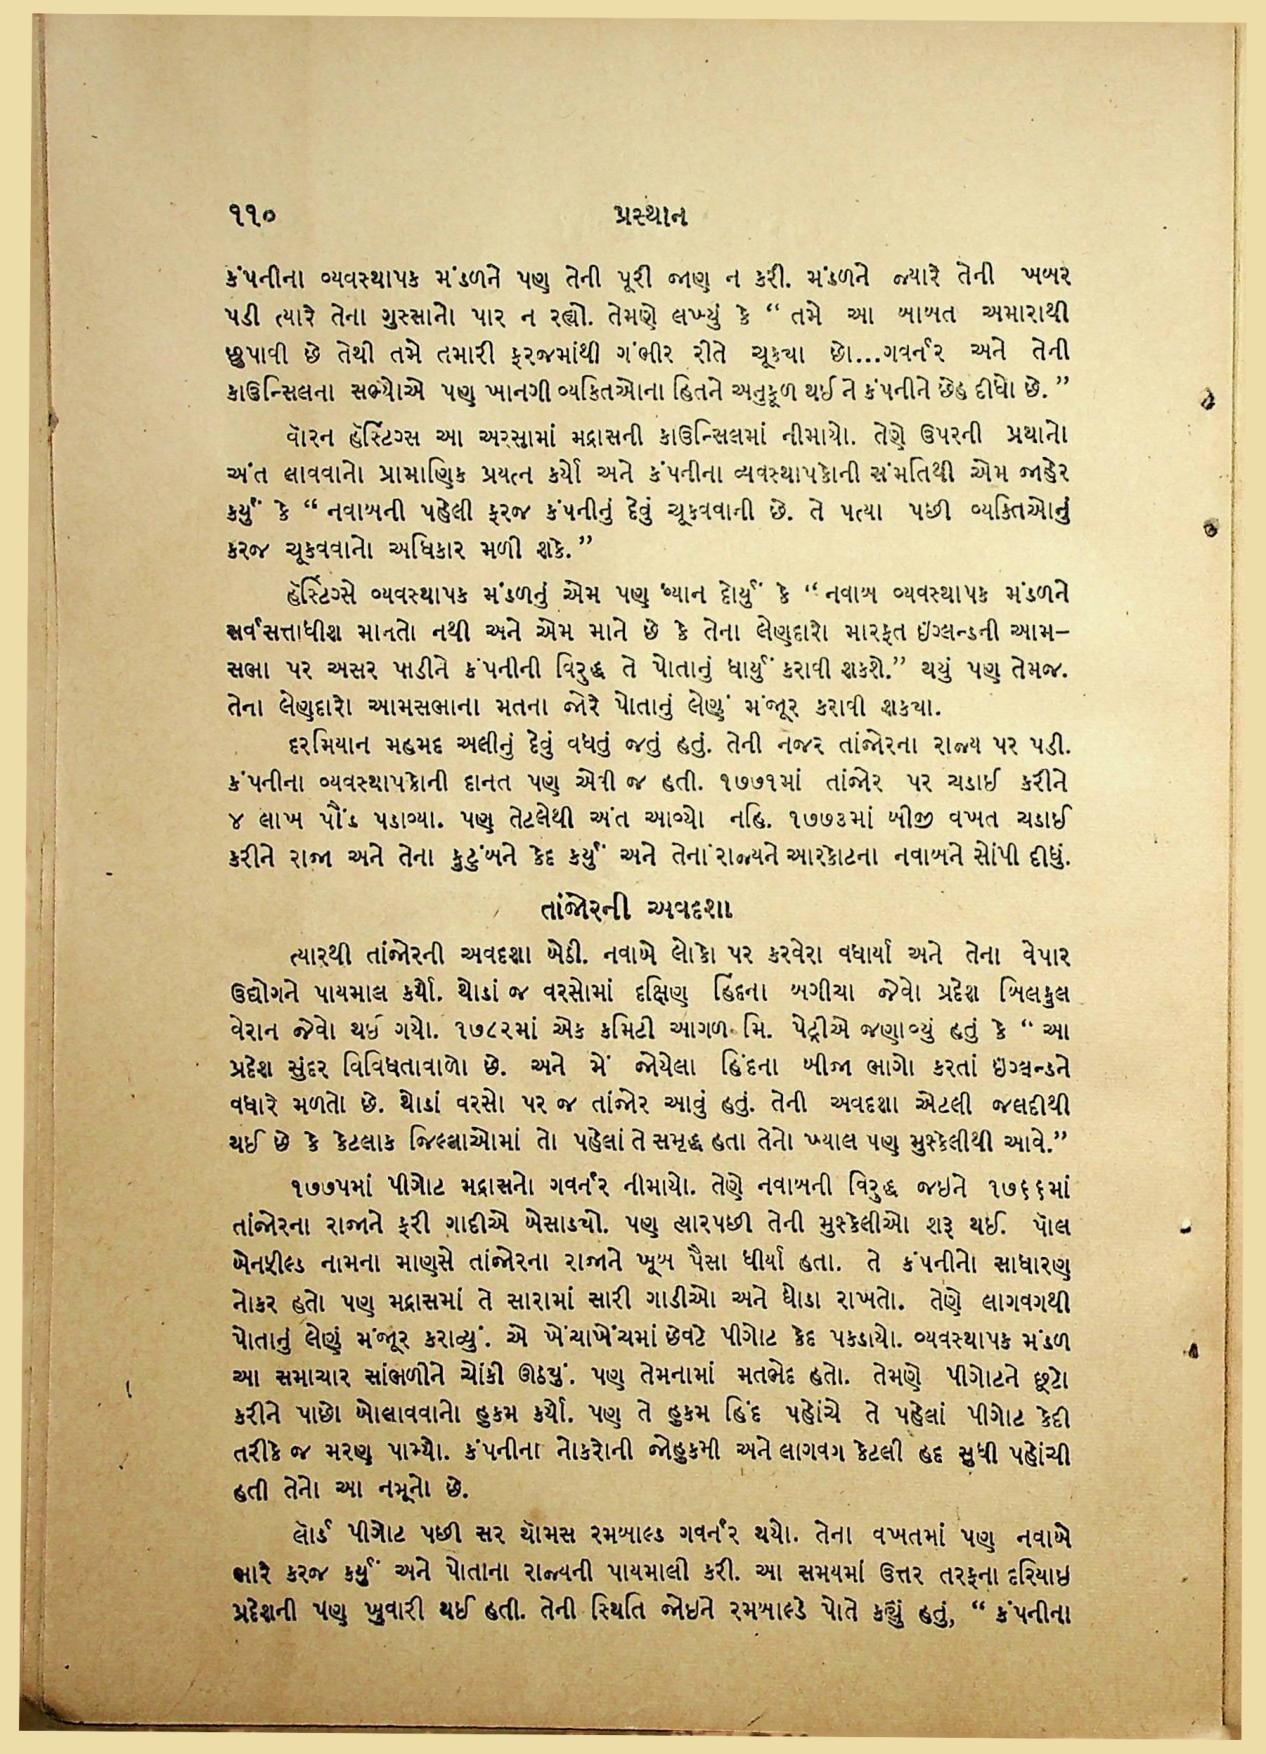 ૧૧૦ પ્રસ્થાન
કંપનીના વ્યવસ્થાપક મંડળને પણ તેની પૂરી જાણ ન કરી. મંડળને જ્યારે તેની ખબર
પડી ત્યારે તેના ગુસ્સાનો પાર ન રહ્યો. તેમણે લખ્યું કે “ તમે આ બાબત અમારાથી
છુપાવી છે તેથી તમે તમારી ફરજમાંથી ગંભીર રીતે ચૂક્યા છો...ગવર્નર અને તેની
કાઉન્સિલના સભ્યોએ પણ ખાનગી વ્યક્તિઓના હિતને અનુકૂળ થઈ ને કંપનીને છેહ દીધો છે.”
વૉરન હૅસ્ટિંગ્સ આ અરસામાં મદ્રાસની કાઉન્સિલમાં નીમાયો. તેણે ઉપરની પ્રથાનો
અંત લાવવાનો પ્રામાણિક પ્રયત્ન કર્યો અને કંપનીના વ્યવસ્થાપકોની સંમતિથી એમ જાહેર
કર્યું કે “ નવાબની પહેલી ફરજ કંપનીનું દેવું ચૂકવવાની છે. તે પત્યા પછી વ્યક્તિઓનું
કરજ ચૂકવવાનો અધિકાર મળી શકે.”
હૅસ્ટિંગ્સે વ્યવસ્થાપક મંડળનું એમ પણ ધ્યાન દોર્યું કે “ નવાબ વ્યવસ્થાપક મંડળને
સર્વસત્તાધીશ માનતો નથી અને એમ માને છે કે તેના લેણદારો મારફત ઇંગ્લન્ડની આમ–
સભા પર અસર પાડીને કંપનીની વિરુદ્ધ તે પોતાનું ધાર્યું કરાવી શકશે.” થયું પણ તેમજ.
તેના લેણદારો આમસભાના મતના જોરે પોતાનું લેણું મંજૂર કરાવી શક્યા.
દરમિયાન મહમદ અલીનું દેવું વધતું જતું હતું. તેની નજર તાંજોરના રાજ્ય પર પડી.
કંપનીના વ્યવસ્થાપકોની દાનત પણ એવી જ હતી. ૧૭૭૧માં તાંજોર પર ચડાઈ કરીને
૪ લાખ પૌંડ પડાવ્યા. પણ તેટલેથી અંત આવ્યો નહિ. ૧૭૭૩માં બીજી વખત ચડાઈ
કરીને રાજા અને તેના કુટુંબને કેદ કર્યું અને તેના રાજ્યને આરકોટના નવાબને સોંપી દીધું.
તાંજોરની અવદશા
ત્યારથી તાંજોરની અવદશા બેઠી. નવાબે લોકો પર કરવેરા વધાર્યા અને તેના વેપાર
ઉદ્યોગને પાયમાલ કર્યો. થોડાં જ વરસોમાં દક્ષિણ હિંદના બગીચા જેવો પ્રદેશ બિલકુલ
વેરાન જેવો થઈ ગયો. ૧૭૮૨માં એક કમિટી આગળ મિ. પેટ્રીએ જણાવ્યું હતું કે “ આ
પ્રદેશ સુંદર વિવિધતાવાળો છે. અને મેં જોયેલા હિંદના બીજા ભાગો કરતાં ઇંગ્લન્ડને
વધારે મળતો છે. થોડાં વરસો પર જ તાંજોર આવું હતું. તેની અવદશા એટલી જલદીથી
થઈ છે કે કેટલાક જિલ્લાઓમાં તો પહેલાં તે સમૃદ્ધ હતા તેનો ખ્યાલ પણ મુશ્કેલીથી આવે.”
૧૭૭૫માં પીગોટ મદ્રાસનો ગવર્નર નીમાયો. તેણે નવાબની વિરુદ્ધ જઇને ૧૭૬૬માં
તાંજોરના રાજાને ફરી ગાદીએ બેસાડ્યો. પણ ત્યારપછી તેની મુશ્કેલીઓ શરૂ થઈ. પૉલ
બેનફીલ્ડ નામના માણસે તાંજોરના રાજાને ખૂબ પૈસા ધીર્યા હતા. તે કંપનીનો સાધારણ
નોકર હતો પણ મદ્રાસમાં તે સારામાં સારી ગાડીઓ અને ઘોડા રાખતો. તેણે લાગવગથી
પોતાનું લેણું મંજૂર કરાવ્યું. એ ખેંચાખેંચમાં છેવટે પીગોટ કેદ પકડાયો. વ્યવસ્થાપક મંડળ
આ સમાચાર સાંભળીને ચોંકી ઊઠ્યું. પણ તેમનામાં મતભેદ હતો. તેમણે પીગોટને છૂટો
કરીને પાછો બોલાવવાનો હુકમ કર્યો. પણ તે હુકમ હિંદ પહોંચે તે પહેલાં પીગોટ કેદી
તરીકે જ મરણ પામ્યો. કંપનીના નોકરોની જોહુકમી અને લાગવગ કેટલી હદ સુધી પહોંચી
હતી તેનો આ નમૂનો છે.
લૉર્ડ પીગોટ પછી સર થૉમસ રમબોલ્ડ ગવર્નર થયો. તેના વખતમાં પણ નવાબે
ભારે કરજ કર્યું અને પોતાના રાજ્યની પાયમાલી કરી. આ સમયમાં ઉત્તર તરફના દરિયાઇ
પ્રદેશની પણ ખુવારી થઈ હતી. તેની સ્થિતિ જોઇને રમબોલ્ડે પોતે કહ્યું હતું, “ કંપનીના